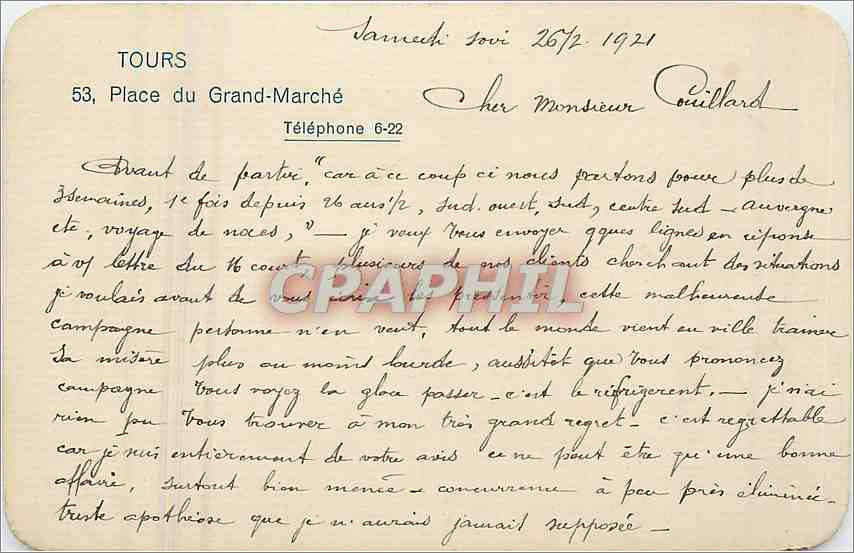 Samedi soir 26/2. 1921
TOURS
53, Place du Grand-Marché
Téléphone 6-22
Cher Monsieur Couillard
Avant de partir, "car à ce coup ci nous partons pour plus de
3 semaines, 1e fois depuis 26 ans 1/2, sud-ouest, sud, centre sud - auvergne
etc, voyage de noces," - je veux vous envoyer qques lignes en réponse
à v/ lettre du 16 court, plusieurs de nos clients cherchant des situations
je voulais avant de vous écrire les pressentir, cette malheureuse
CPAPHIL
campagne personne n'en veut, tout le monde vient en ville trainer
sa misère plus ou moins lourde, aussitôt que vous prononcez
campagne vous voyez la glace passer - c'est le réfrigerent. - je n'ai
rien pu vous trouver à mon très grand regret - c'est regrettable
car je suis entièrement de votre avis ce ne peut être qu'une bonne
affaire, surtout bien menée - concurrence à peu près éliminée -
triste apothéose que je n'aurais jamais supposée -